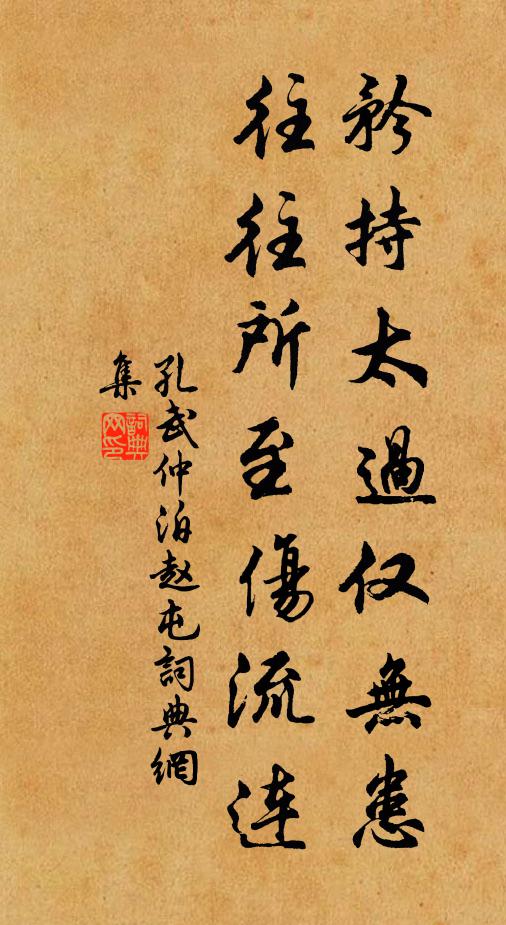 矜持太過仅無患
往往所至傷流連
孔武仲泊赵屯詞典網
集
詞典网印